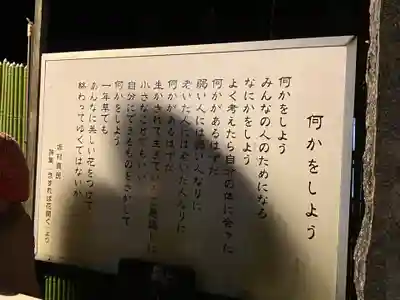 何かをしよう
何かをしよう
みんなの人のためになる
なにかをしよう
よく考えたら自分の体に合った
何かがあるはずだ
弱い人には弱い人なりに
老いた人には老いた人なりに
何かがあるはずだ
生かされて生きて
小さなことでもいい
自分にできるものをさがして
何かをしよう
一年草でも
あんなに美しい花をつけて
終わってゆくではないか
坂村真民
詩集「念ずれば花開く」より